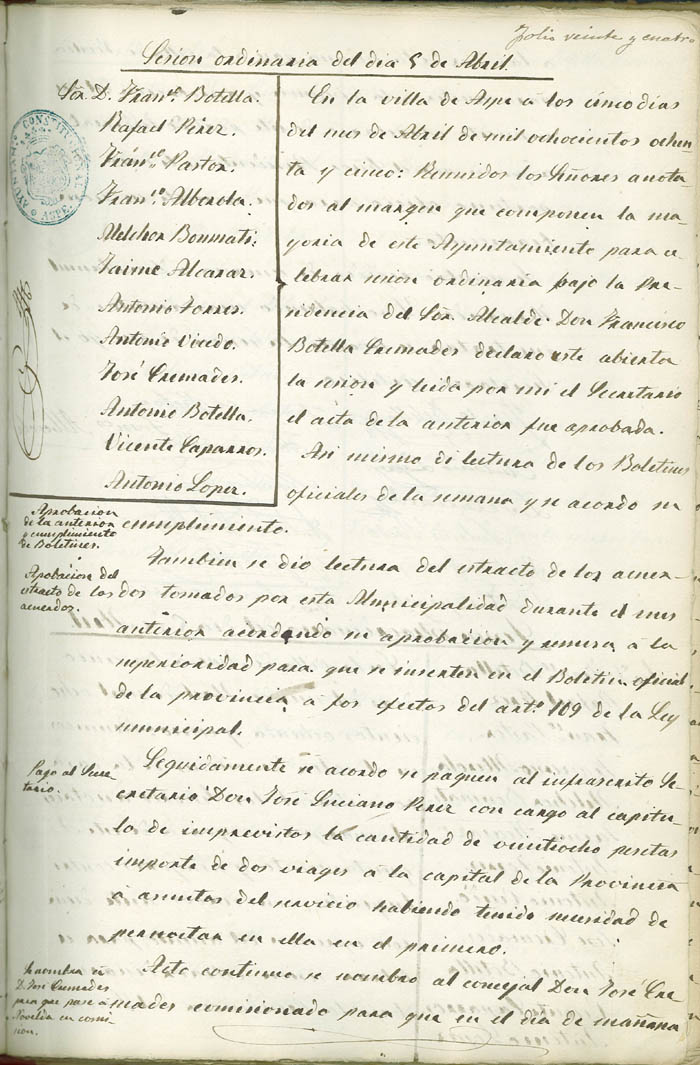 Folio veinte y cuatro
Sesion ordinaria del dia 5 de Abril.
Sor. D. Franco. Botella.
Rafael Perez.
Franco. Pastor.
Franco. Alberola.
Melchor Bonmati.
Jaime Alcaraz.
Antonio Torres.
Antonio Vicedo.
José Cremades.
Antonio Botella.
Vicente Caparros.
Antonio Lopez.
AYUNTAMTO. CONSTITUCIONAL
ASPE
En la villa de Aspe á los cinco dias
del mes de Abril de mil ochocientos ochen-
ta y cinco: Reunidos los Señores anota-
dos al margen que componen la ma-
yoria de este Ayuntamiento para ce-
lebrar sesion ordinaria bajo la Pre-
sidencia del Sor. Alcalde Don Francisco
Botella Cremades declaro este abierta
la sesion y leida por mi el Secretario
el acta de la anterior fue aprobada.
Asi mismo di lectura de los Boletines
oficiales de la semana y se acordo su
cumplimiento.
Aprobacion
de la anterior
y cumplimiento
de Boletines.
Tambien se dio lectura del estracto de los acuer-
dos tomados por esta Municipalidad durante el mes
anterior acordando su aprobacion y remesa á la
superioridad para que se inserten en el Boletin oficial
de la provincia á los efectos del arto. 109 de la Ley
municipal.
Aprobacion del
estracto de los
acuerdos.
Seguidamente se acordo se paguen al infrascrito Se-
cretario Don José Luciano Perez con cargo al capitu-
lo de imprevistos la cantidad de veintiocho pesetas
importe de dos viages á la capital de la Provincia
á asuntos del servicio habiendo tenido necesidad de
pernoctar en ella en el primero.
Pago al Secre-
tario.
Acto continuo se nombro al concejal Don José Cre-
mades comisionado para que en el dia de mañana
Se nombra á
D. José Cremades
para que pase á
Novelda en comi-
sion.